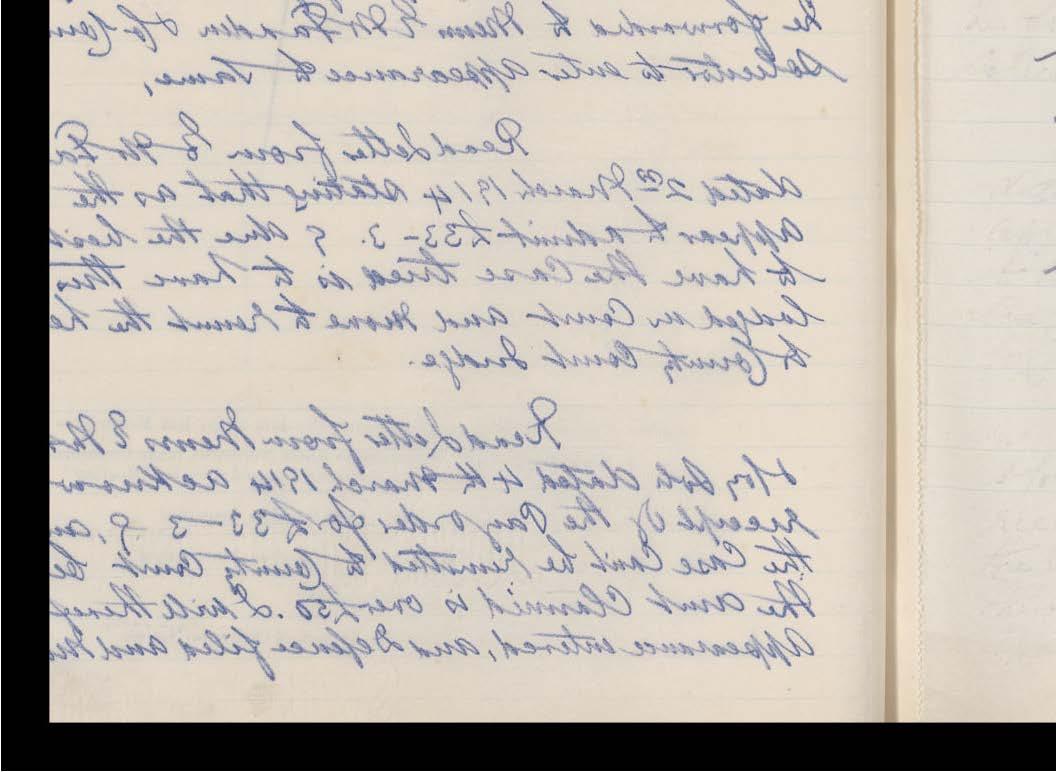 be forwarded to Messrs E W
Solicitor to enter appearance to same,
Read letter from E W
dated 2nd March 1914 stating that as the
appear to admit £33-3.9 due the best
to have the Case tried is to have this
lodged in Court and move to remit the
to County Court Judge.
Read letter from Messrs E
dated 4th March 1914
receipt of the Pay order for £33-3-9.
the Case can't be remitted to County Court
the amt Claimed is over £50. I will
Appearance entered, and Defence filed and